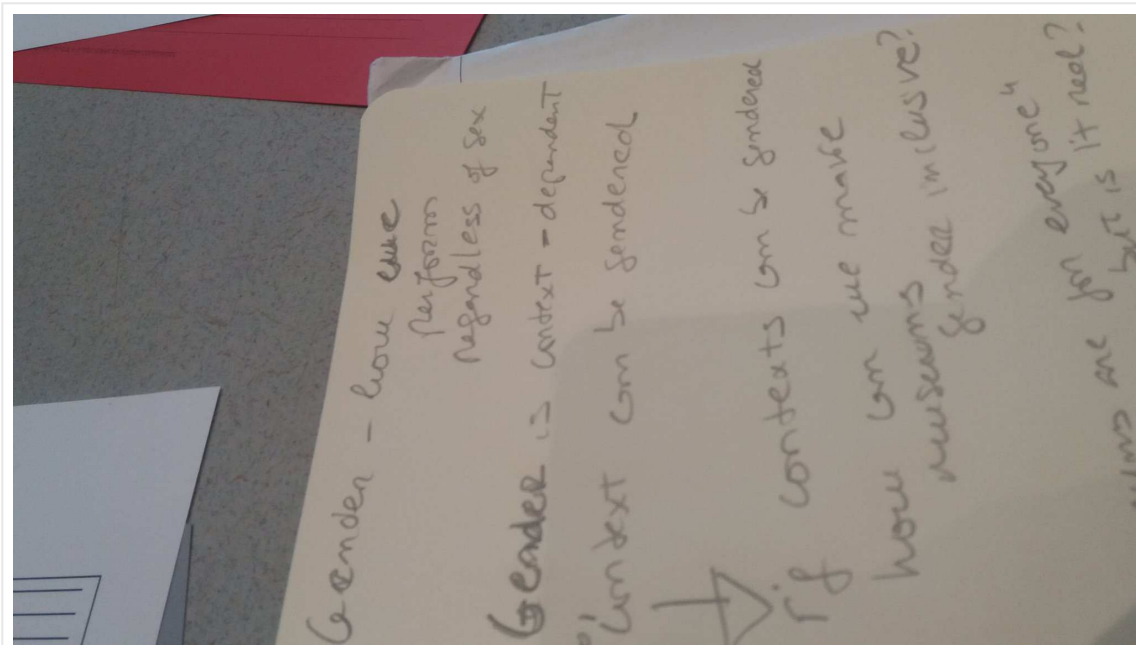 Gender - how we
perform
regardless of sex
Gender is context-dependent
context can be gendered
if contexts can be gendered
how can we make
museums
gender inclusive?
are for everyone"
but is it real?